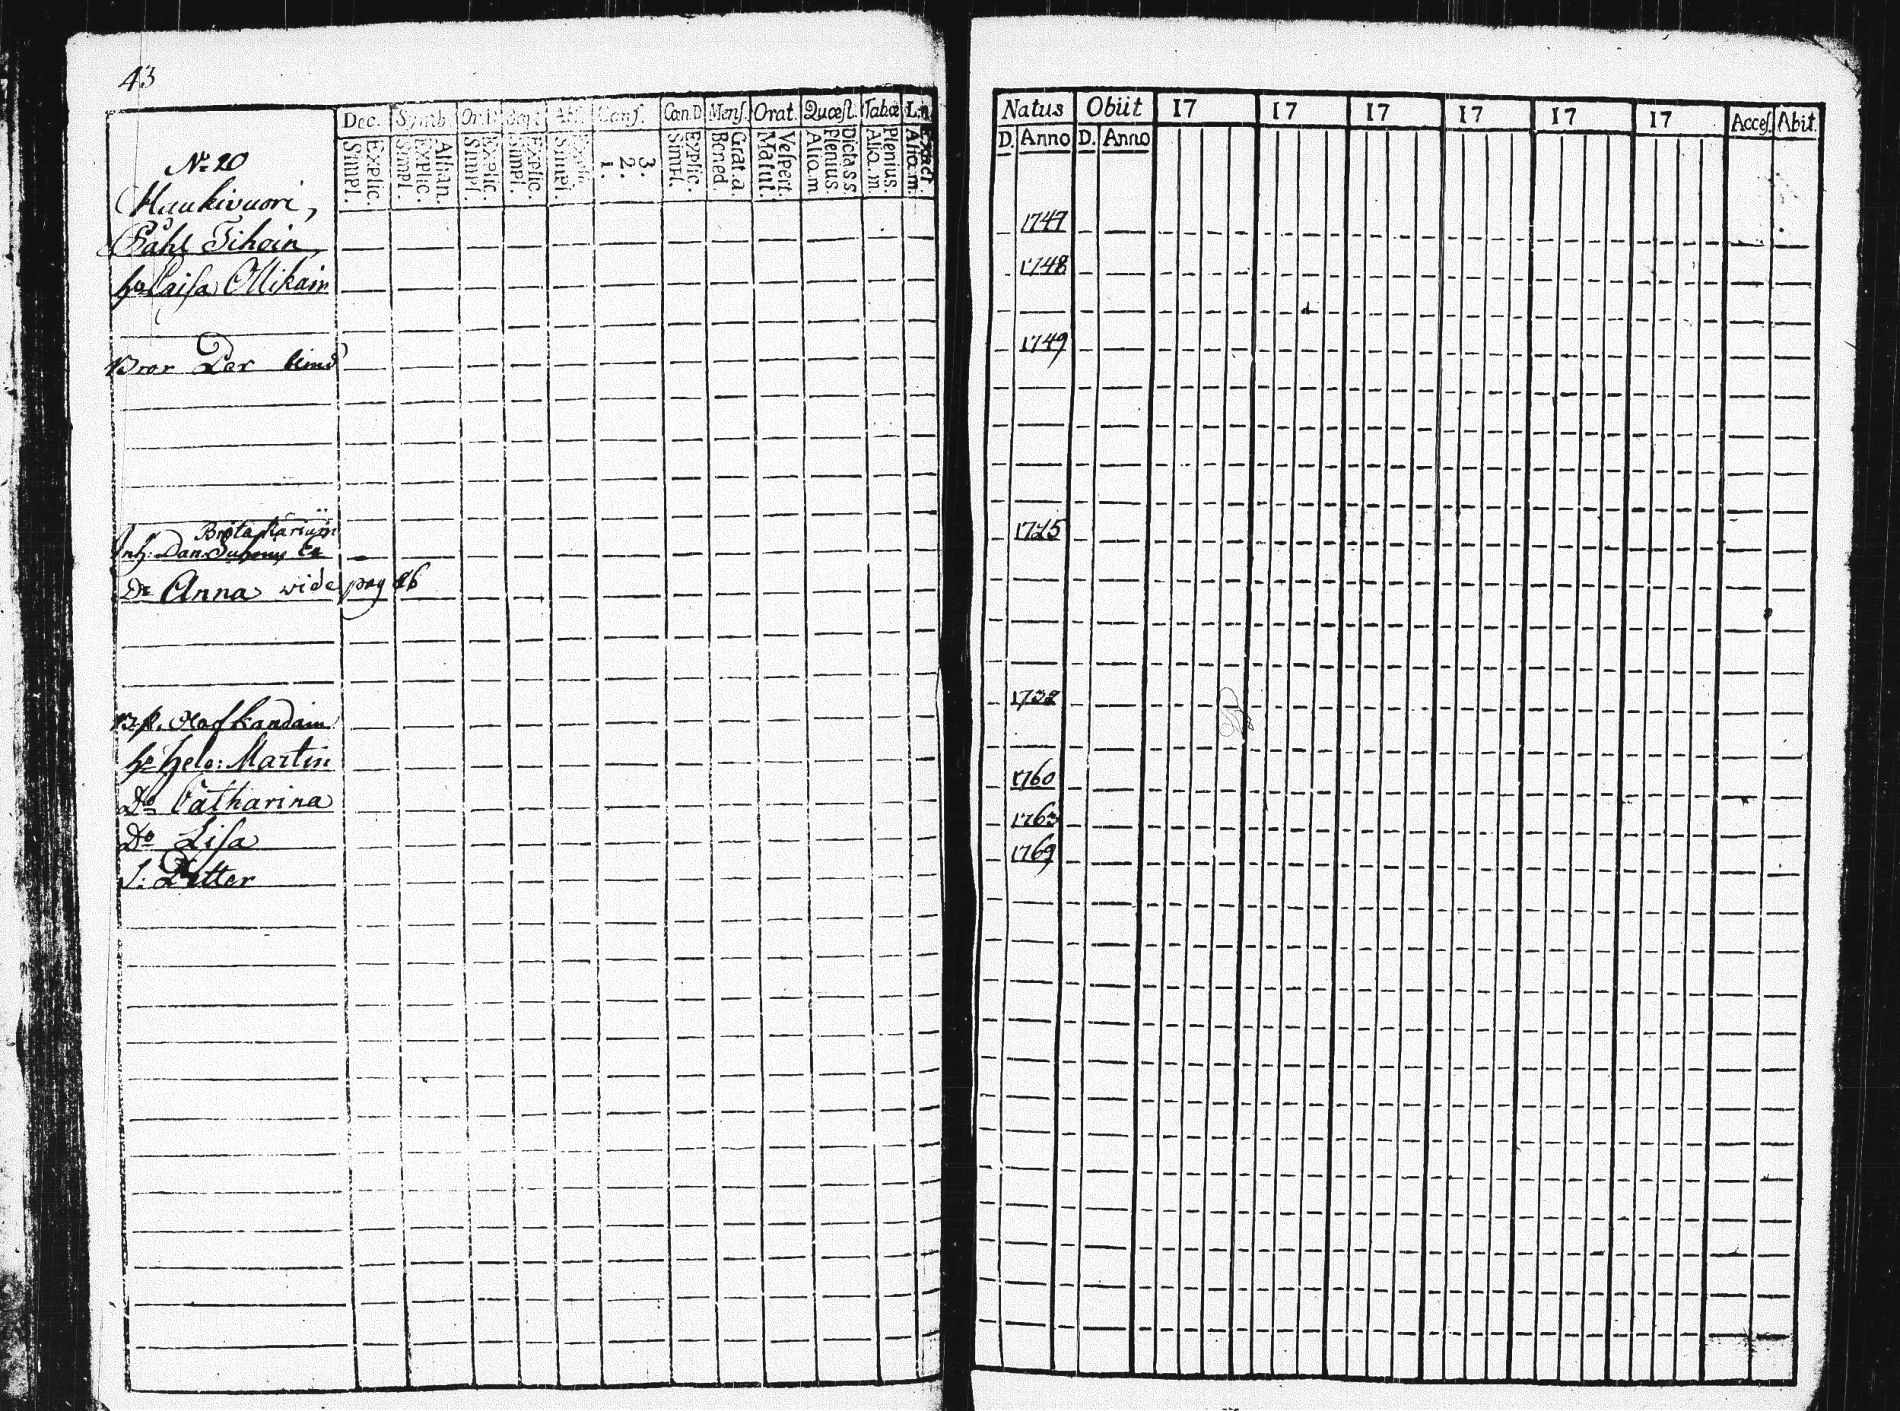 43
Dec. Symb. Or.D. Bapt. Abs. Conf. Cœn.D. Mens. Orat. Quæst. Tabæ
Simpl. Explic. Simpl. Explic. Athan. Simpl. Explic. Simpl. Explic. Simpl. Explic. 1. 2. 3. Simpl. Explic. Bened. Grat.a. Matut. Vespert. Alia.m. Plenius Dicta s.s. Alia.m. Plenius. Alia.m. Exact.
No 20
Haukivuori,
Påhl Tihoin
h. Caisa Ollikain
Bror Per
Inh: Dan.
Dr Anna vide pag 26
Olof Kandain
h. Hele: Martin
Do Catharina
Do Lisa
S: Petter
Natus Obiit 17 17 17 17 17 17 Acces. Abit.
D. Anno D. Anno
1747
1748
1749
1725
1732
1760
1763
1769